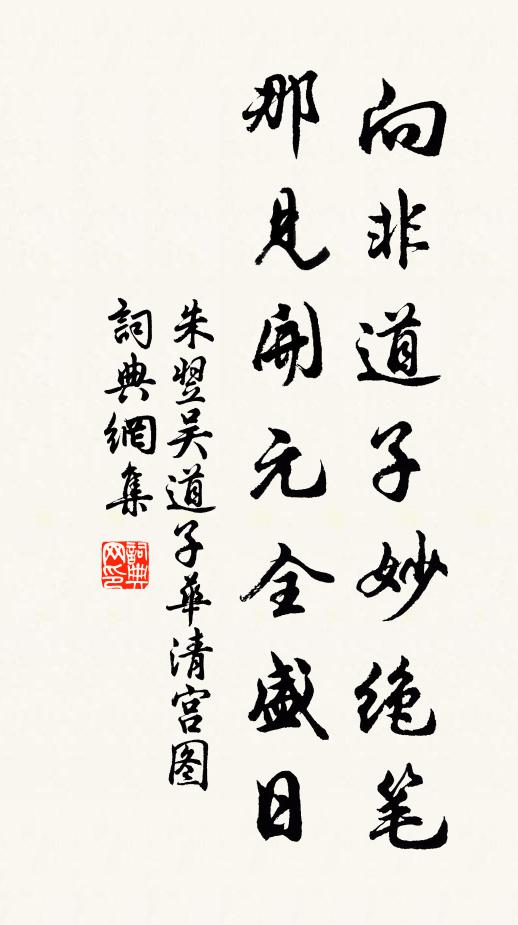 向非道子妙绝笔
那見開元全盛日
朱翌吴道子華清宫图
詞典網集
詞典网印